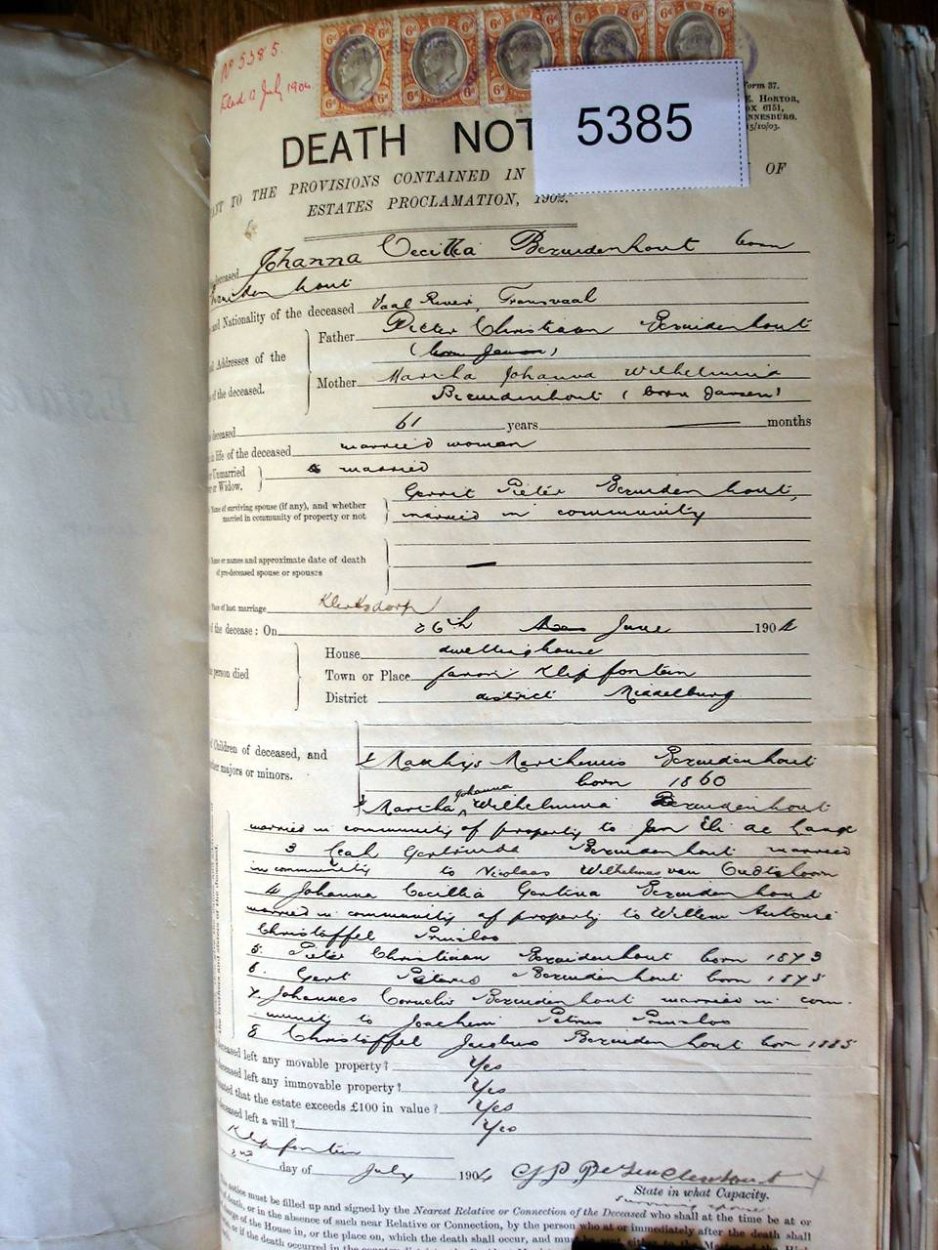 No 5385.
Filed 12 July 1904
6d 6d 6d 6d 6d
5385
Form 37.
E. HORTOR,
OX 6151,
NNESBURG.
15/10/03.
DEATH NOT
ANT TO THE PROVISIONS CONTAINED IN OF
ESTATES PROCLAMATION, 1902.
deceased Johanna Cecilia Bezuidenhout born
Bezuidenhout
and Nationality of the deceased Vaal River, Transvaal
Addresses of the
of the deceased.
Father Pieter Christiaan Bezuidenhout
(born Jansen)
Mother Martha Johanna Wilhelmina
Bezuidenhout (born Jansen)
deceased 61 years — months
in life of the deceased married woman
Unmarried
or Widow. married
Name of surviving spouse (if any), and whether
married in community of property or not
Gerrit Pieter Bezuidenhout,
married in community
Name or names and approximate date of death
of pre-deceased spouse or spouses
—
Place of last marriage Klerksdorp
of the decease: On 26th June 1904
person died
House dwelling house
Town or Place farm Klipfontein
District district Middelburg
Children of deceased, and
majors or minors.
1 Mathys Marthinus Bezuidenhout
born 1860
2 Martha Johanna Wilhelmina Bezuidenhout
married in community of property to Jan Eli de Lange
3 Leah Gertruida Bezuidenhout married
in community to Nicolaas Wilhelmus van Oudtshoorn
4 Johanna Cecilia Gertina Bezuidenhout
married in community of property to Willem Antonie
Christoffel Prinsloo
5. Pieter Christiaan Bezuidenhout born 1873
6. Gert Petrus Bezuidenhout born 1875
7. Johannes Cornelis Bezuidenhout married in com-
munity to Joachem Petrus Prinsloo
8 Christoffel Jacobus Bezuidenhout born 1885
deceased left any movable property? Yes
deceased left any immovable property? Yes
that the estate exceeds £100 in value? Yes
deceased left a will? Yes
Klipfontein
2nd day of July 1904
State in what Capacity.
surviving spouse
notice must be filled up and signed by the Nearest Relative or Connection of the Deceased who shall at the time be at or
of death, or in the absence of such near Relative or Connection, by the person who at or immediately after the death shall
charge of the House in, or the place on, which the death shall occur, and must
if the death occurred in the